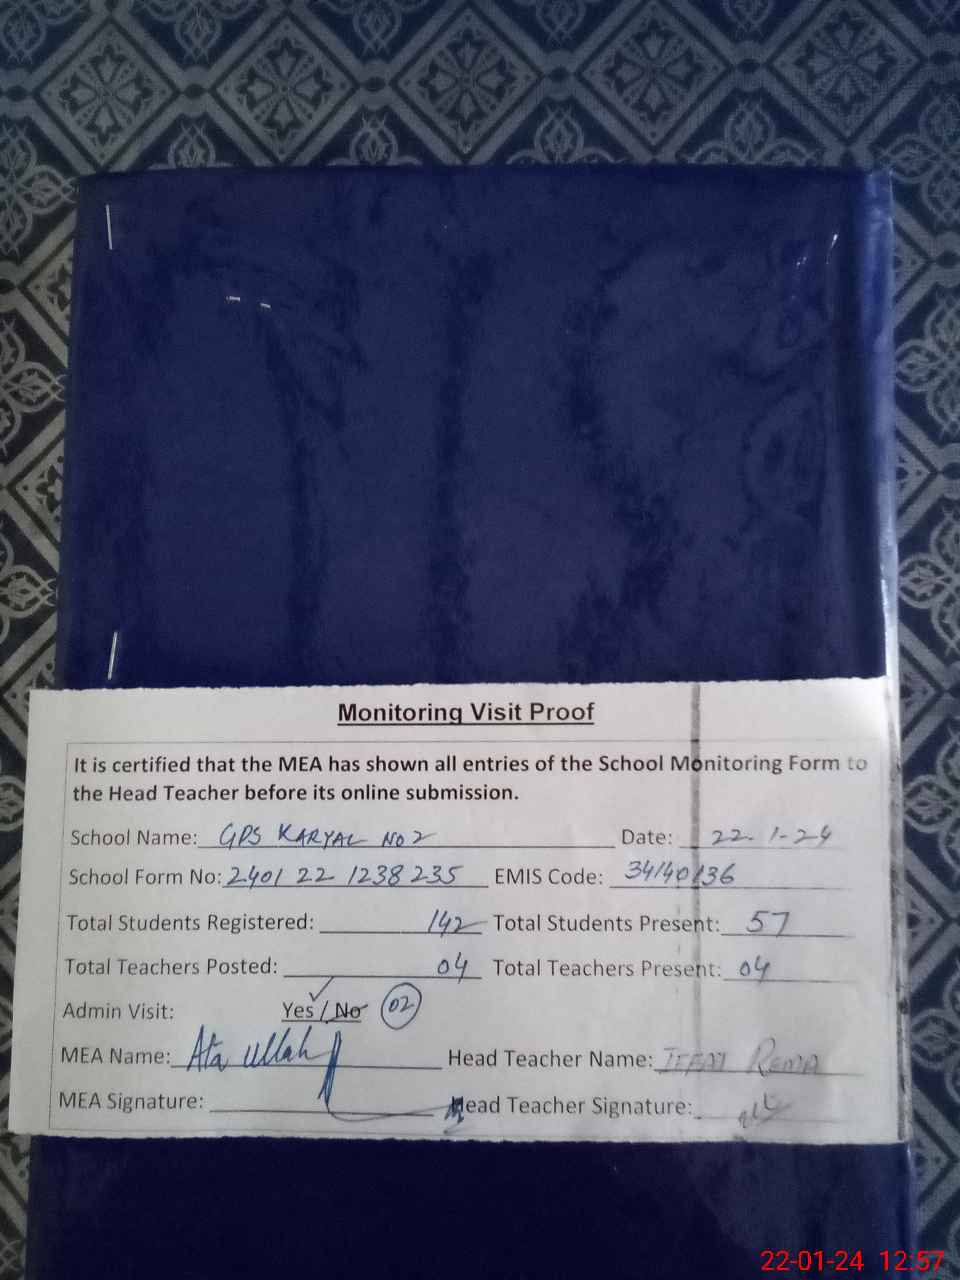 Monitoring Visit Proof
It is certified that the MEA has shown all entries of the School Monitoring Form to
the Head Teacher before its online submission.
School Name: GPS KARYAL NO 2 Date: 22-1-24
School Form No: 2401 22 1238 235 EMIS Code: 34140136
Total Students Registered: 142 Total Students Present: 57
Total Teachers Posted: 04 Total Teachers Present: 04
Admin Visit: Yes / No 02
MEA Name: Ata Ullah Head Teacher Name:
MEA Signature: Head Teacher Signature:
22-01-24 12:57